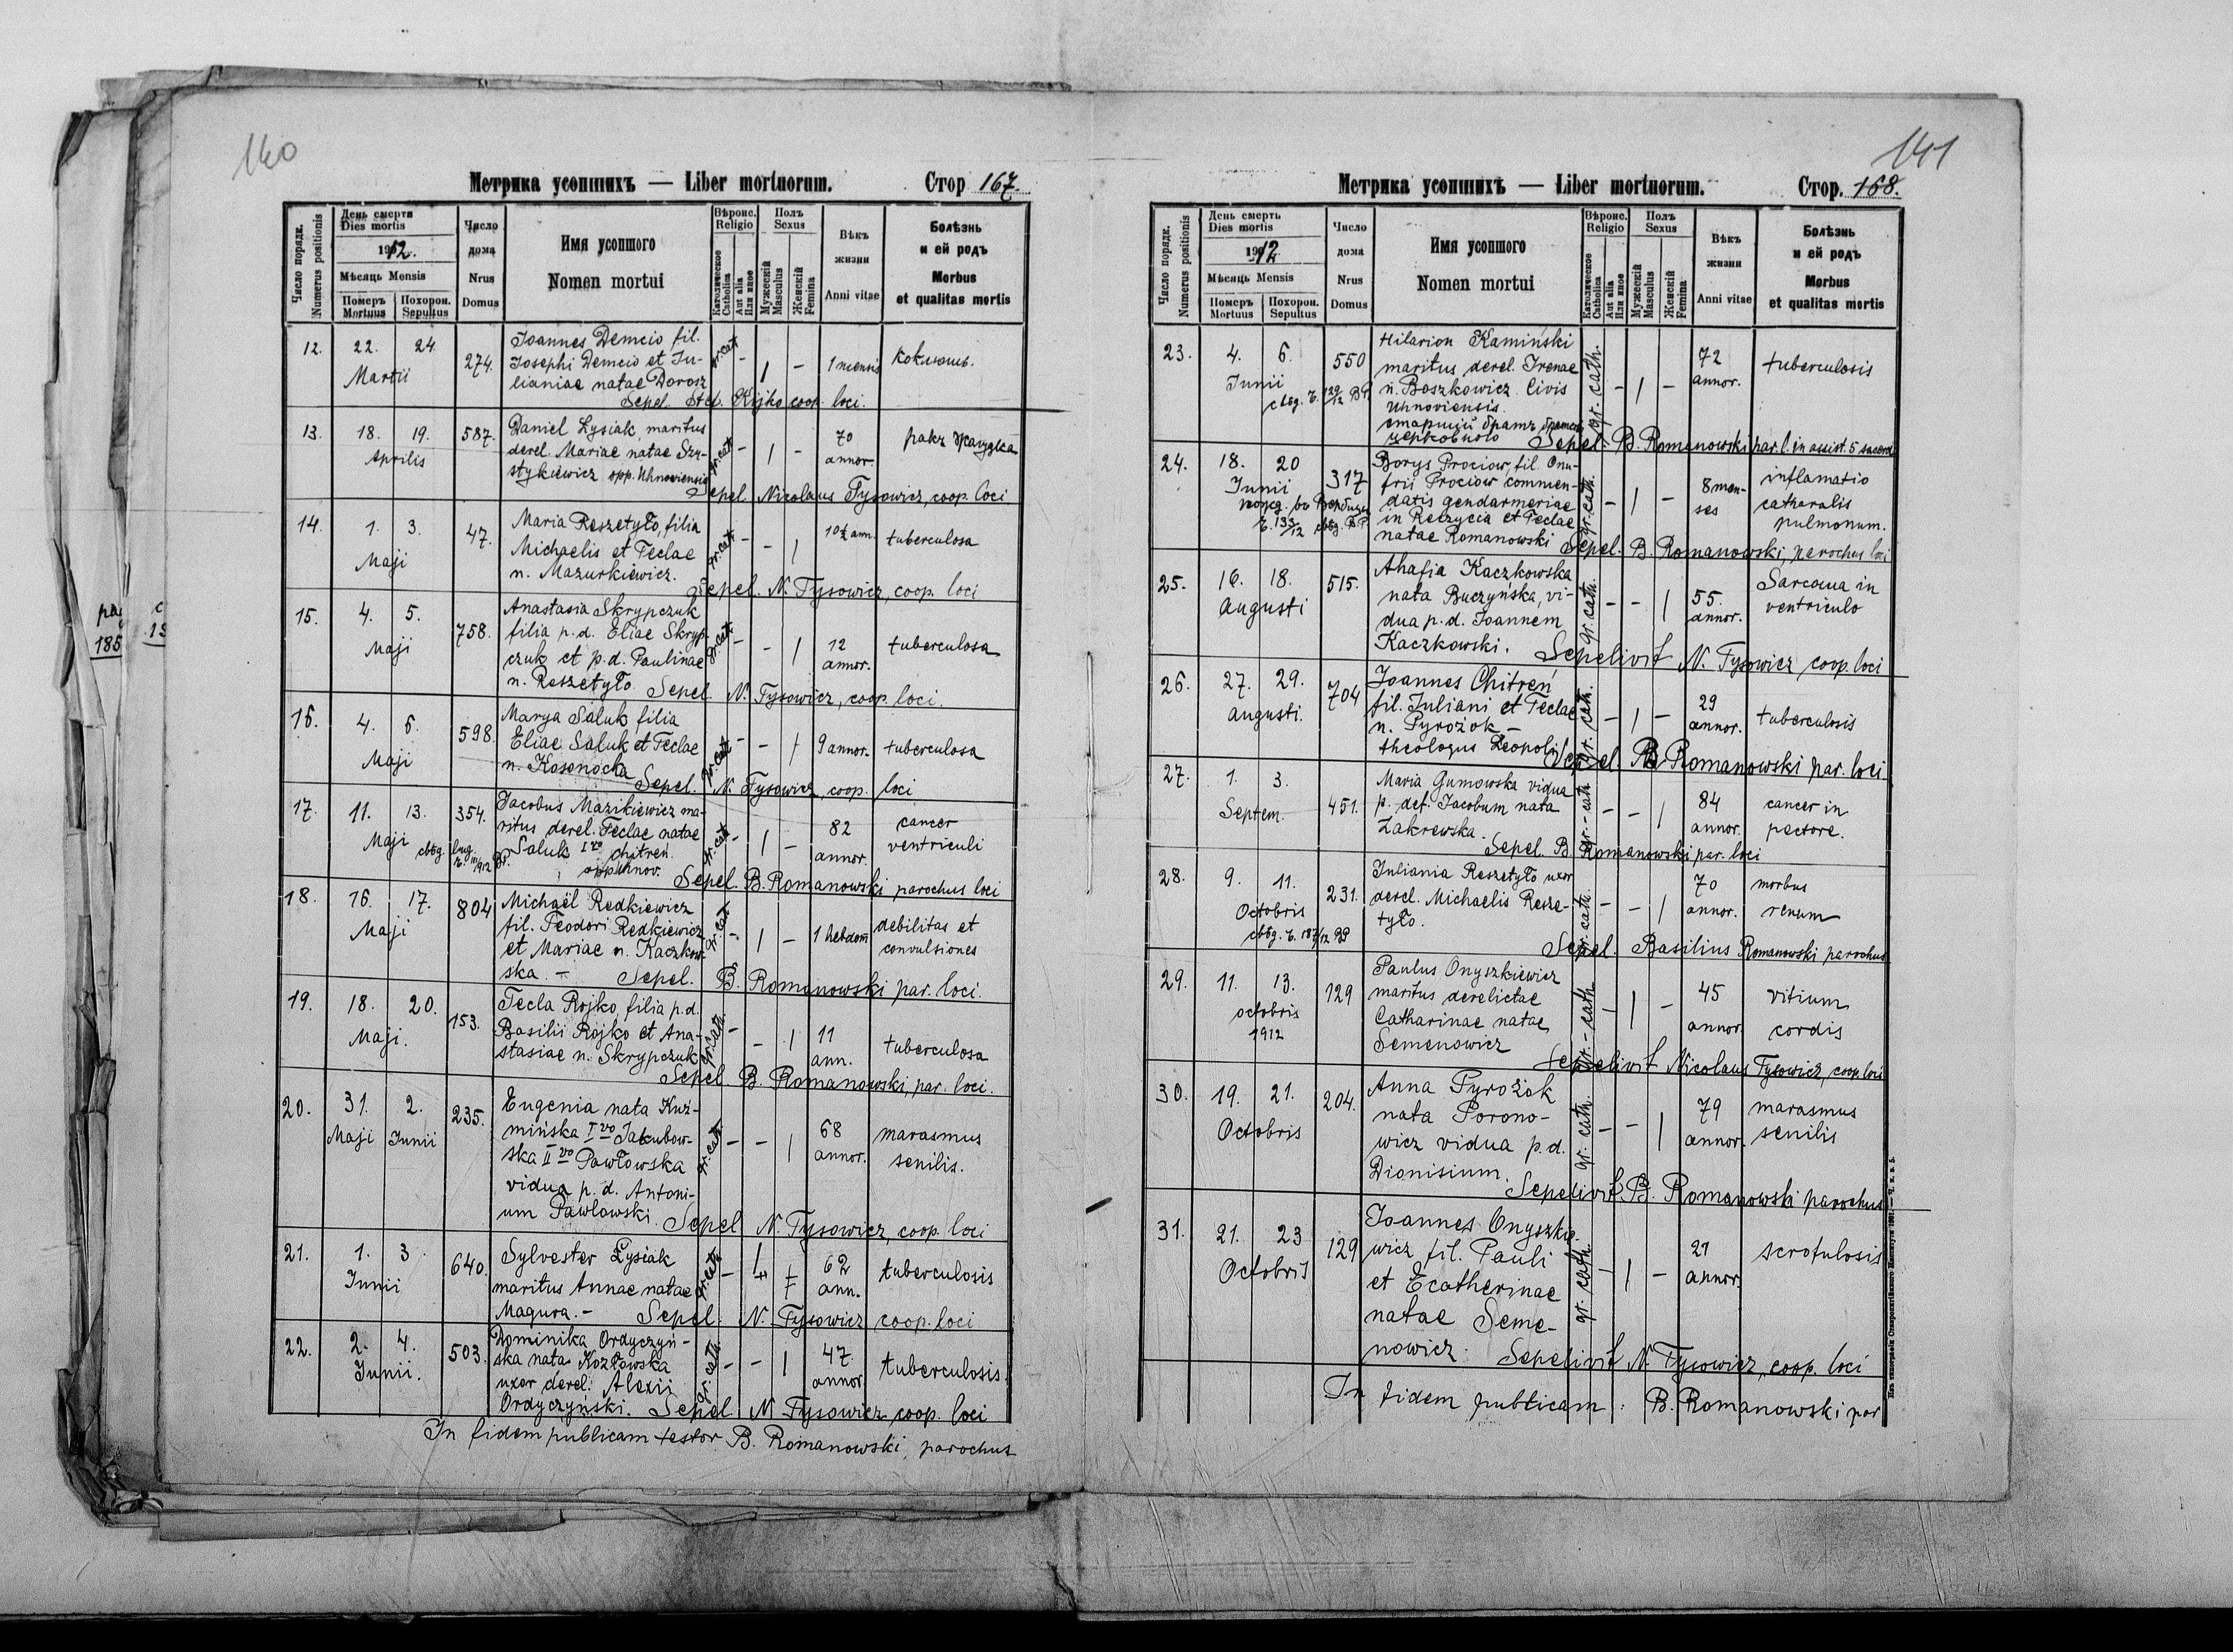 140
Метрика усопшихъ — Liber mortuorum. Стор 167.
Число порядк.
Numerus positionis
День смерти
Dies mortis
1912.
Мѣсяць Mensis
Померъ
Mortuus
Похорон.
Sepultus
Число
дома
Nrus
Domus
Имя усопшого
Nomen mortui
Вѣроис.
Religio
Католическое
Catholica
Aut alia
Или иное
Полъ
Sexus
Мужескій
Masculus
Женскій
Femina
Вѣкъ
жизни
Anni vitae
Болѣзнь
и ей родъ
Morbus
et qualitas mortis
12. 22. 24 Martii 274.
Joannes Demcio fil.
Josephi Demcio et Ju-
lianiae natae Dorosz
gr. cat. - | - 1 mensis коклюшъ.
Sepel. Kojko coop. loci.
13. 18. 19. Aprilis 587.
Daniel Łysiak, maritus
derel. Mariae natae Szy-
stykiewicz opp. Uhnoviensis
gr. cat. - | - 70 annor. ракъ жалудка
Sepel. Nicolaus Tysowicz, coop. loci
14. 1. 3. Maji 47.
Maria Reszetyło, filia
Michaelis et Teclae
n. Mazurkiewicz.
gr. cat. - - | 10½ ann. tuberculosa
Sepel. N. Tysowicz, coop. loci
15. 4. 5. Maji 758.
Anastasia Skrypczuk
filia p.d. Eliae Skryp-
czuk et p.d. Paulinae
n. Reszetyło
gr. cat. - - | 12 annor. tuberculosa
Sepel. N. Tysowicz, coop. loci.
16. 4. 6. Maji 598.
Marya Saluk filia
Eliae Saluk et Teclae
n. Kosonocka
gr. cat. - - | 9 annor. tuberculosa
Sepel. N. Tysowicz, coop. loci
17. 11. 13. Maji 354.
Jacobus Mazikiewicz ma-
ritus derel. Teclae natae
Saluk Ivo Chitreń
opp. Uhnov.
gr. cat. - | - 82 annor. cancer ventriculi
Sepel. B. Romanowski parochus loci
18. 16. 17. Maji 804
Michaël Redkiewicz
fil. Teodori Redkiewicz
et Mariae n. Kaczkow-
ska. -
gr. cat. - | - 1 hebdom debilitas et convulsiones
Sepel. B. Romanowski par. loci.
19. 18. 20. Maji. 153.
Tecla Rojko, filia p.d.
Basilii Rojko et Ana-
stasiae n. Skrypczuk
gr. cath. - - | 11 ann. tuberculosa
Sepel. B. Romanowski, par. loci.
20. 31. 2. Maji Junii 235.
Eugenia nata Kuź-
mińska Ivo Jakubow-
ska IIvo Pawłowska
vidua p.d. Antoni-
um Pawlowski.
gr. cath. - - | 68 annor. marasmus senilis.
Sepel N. Tysowicz, coop. loci
21. 1. 3. Junii 640.
Sylvester Łysiak
maritus Annae natae
Magura. -
gr. cath. - | 62 ann. tuberculosis
Sepel. N. Tysowicz coop. loci
22. 2. 4. Junii. 503.
Dominika Ordyczyń-
ska nata Kozłowska
uxor derel. Alexii
Ordyczyński.
gr. cath. - - | 47 annor tuberculosis.
Sepel. N. Tysowicz coop. loci
In fidem publicam testor B. Romanowski, parochus
141
Метрика усопшихъ — Liber mortuorum. Стор. 168.
Число порядк.
Numerus positionis
День смерть
Dies mortis
1912
Мѣсяць Mensis
Померъ
Mortuus
Похорон.
Sepultus
Число
дома
Nrus
Domus
Имя усопшого
Nomen mortui
Вѣроис.
Religio
Католическое
Catholica
Aut alia
Или иное
Полъ
Sexus
Мужескій
Masculus
Женскій
Femina
Вѣкъ
жизни
Anni vitae
Болѣзнь
и ей родъ
Morbus
et qualitas mortis
23. 4. 6. Junii 550
Hilarion Kamiński
maritus derel. Irenae
n. Boszkowicz. Civis
Uhnoviensis.
старшій братъ
церковного
gr. cath. - | - 72 annor. tuberculosis
Sepel. B. Romanowski par. l. in assist. 5 sacerd.
24. 18. 20 Junii 317
Borys Prociow, fil. Onu-
frii Prociow commen-
datis gendarmeriae
in Reczycia et Teclae
natae Romanowski
gr. cath. - | - 8 men-
ses
inflamatio
catharalis
pulmonum.
Sepel. B. Romanowski, parochus loci
25. 16. 18. Augusti 515.
Ahafia Kaczkowska
nata Buczyńska, vi-
dua p.d. Joannem
Kaczkowski.
gr. cath. - - | 55. annor. Sarcoma in ventriculo
Sepelivit N. Tysowicz coop. loci
26. 27. 29. Augusti. 704
Joannes Chitreń
fil. Juliani et Teclae
n. Pyrożok -
theologus Leopoli
gr. cath. - | - 29 annor. tuberculosis
Sepel. B. Romanowski par. loci
27. 1. 3. Septem. 451.
Maria Gumowska vidua
p. def. Jacobum nata
Zakrewska.
gr. - cath - - | 84 annor. cancer in pectore.
Sepel. B. Romanowski par. loci
28. 9. 11. Octobris 231.
Juliania Reszetyło uxor
derel. Michaelis Resze-
tyło.
gr. cath. - - | 70 annor. morbus renum
Sepel. Basilius Romanowski parochus
29. 11. 13. octobris 1912 129
Paulus Onyszkiewicz
maritus derelictae
Catharinae natae
Semenowicz
gr. - cath. - | - 45 annor. vitium cordis
Sepelivit Nicolaus Tysowicz, coop. loci
30. 19. 21. Octobris 204.
Anna Pyrożok
nata Porono-
wicz vidua p.d.
Dionisium.
gr. cath. - - | 79 annor. marasmus senilis
Sepelivit B. Romanowski parochus
31. 21. 23 Octobris 129
Joannes Onyszkie-
wicz fil. Pauli
et Ecatherinae
natae Seme-
nowicz.
gr. cath. - | - 21 annor. scrofulosis
Sepelivit N. Tysowicz, coop. loci
In fidem publicam: B. Romanowski par